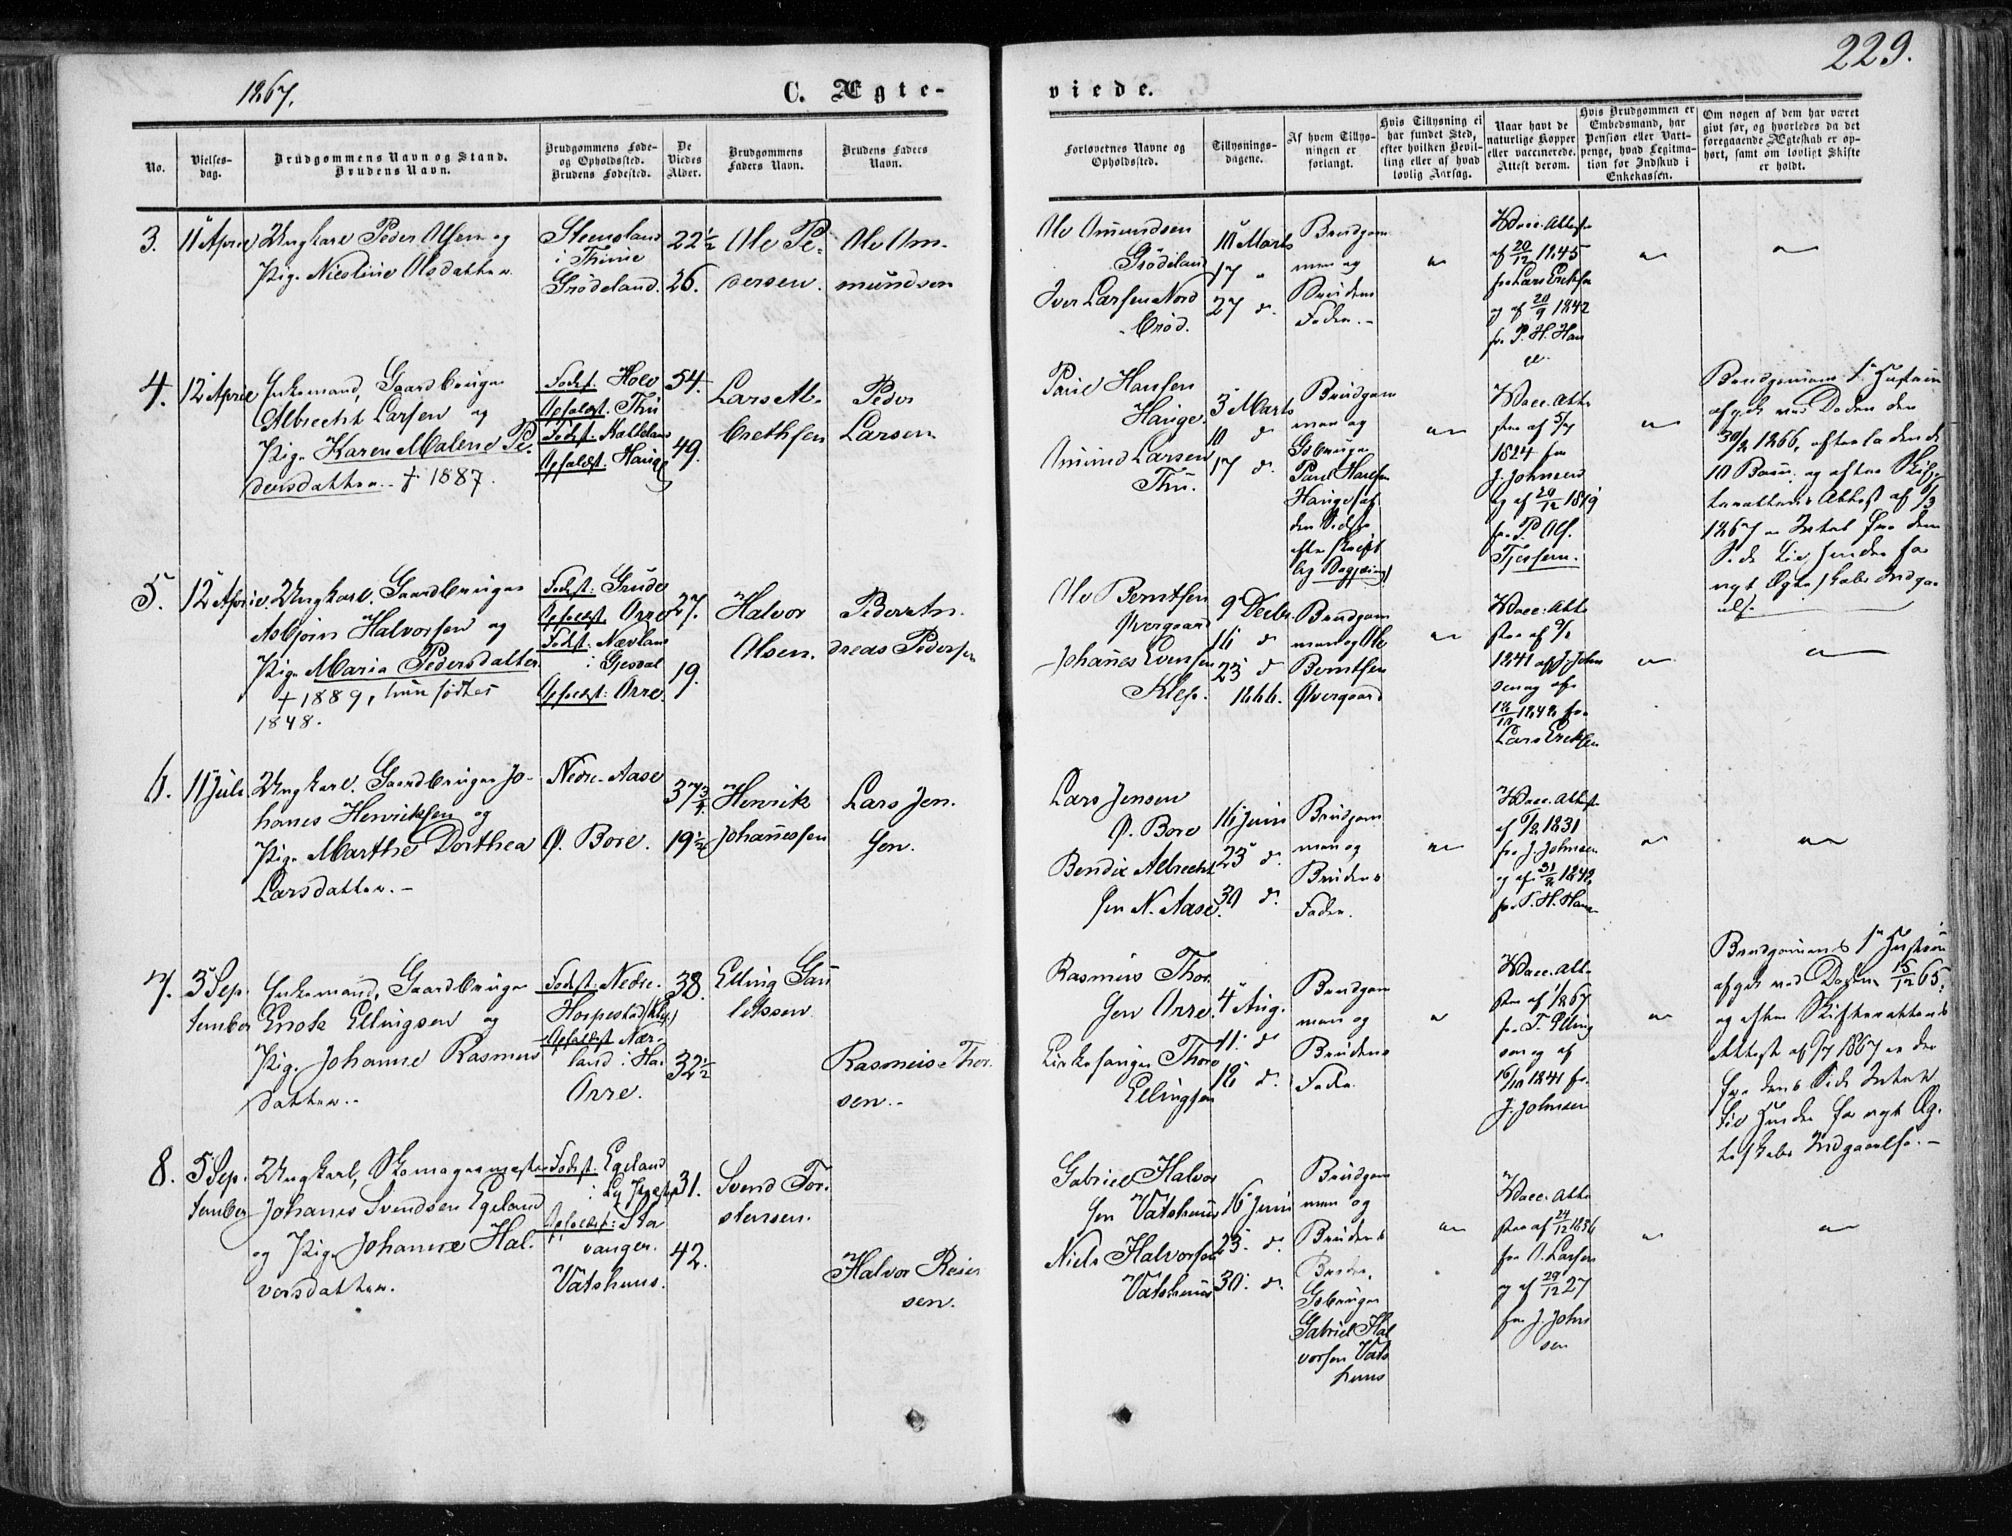 1867.
C. Ægte-
viede.
229.
No.
Vielses-
dag.
Brudgommens Navn og Stand.
Brudens Navn.
Brudgommens Føde-
og Opholdssted.
Brudens Fødested.
De
Viedes
Alder.
Brudgommens
Faders Navn.
Brudens Faders
Navn.
Forlovernes Navne og
Opholdssted.
Tillysnings-
dagene.
Af hvem Tillys-
ningen er
forlangt.
Hvis Tillysning ei
har fundet Sted,
efter hvilken Bevil-
ling eller af hvad
lovlig Aarsag.
Naar havt de
naturlige Kopper
eller vaccinerede.
Attest derom.
Hvis Brudgommen er
Embedsmand, har
Pension eller Vart-
penge, hvad Legitma-
tion for Indskud i
Enkekassen.
Om nogen af dem har været
givt før, og hvorledes da det
foregaaende Ægteskab er op-
hørt, samt om lovligt Skifte
er holdt.
3.
11 April
Ungkarl Peder Olsen og
Pige Nicoline Olsdatter
Steensland
i Thime
Grødeland.
22½
26.
Ole Pe-
dersen.
Ole Am-
mundsen
Ole Amundsen
Grødeland
Iver Larsen Nord
Brød.
10 Marts
17 "
27 d.
Brudgom
men og
Brudens
Fader.
Vacc. Attest
af 20/12 1845
fra Lars Eriksen
og af 20/9 1842
fra P. H. Hau
ge.
4.
12 April
Enkemand, Gaardbruger
Albrecht Larsen og
Pige Karen Malene Pe-
dersdatter. † 1887.
Fødest: Holv
Opholdst: Thu
Fødst: Kalleland
Opholdst: Hauge
54.
49.
Lars Al-
brethsen
Peder
Larsen
Paul Hansen
Hauge.
Amund Larsen
Thu.
3 Marts
10 d
17 d.
Brudgom
men og
Gbruger
Paul Hansen
Hauge (af
den Sidste
efter skriftl
lig Begjæring)
Vacc. Atte
ster af 5/7
1824 fra
J. Johnsen
og af 20/12 1819
fra P. Ols.
Tjessem.
Brudgommens 1ste Hustru
afgik ved Døden den
30/2 1866, efterladende
10 Børn og efter Skif-
terettens Attest af 6/3
1867 er Intet fra dens
Side til Hinder for
nyt Ægteskabs Indgaa
else.
5.
12 April
Ungkarl. Gaardbruger
Asbjørn Halvorsen og
Pige Maria Pedersdatter
† 1889, hun fødtes
1848.
Fødst: Grude
Opholdst. Orre
Fødst: Nævland
i Gjesdal
Opholdst: Orre.
27.
19.
Halvor
Olsen.
Peder An-
dreas Pedersen
Ole Berntsen
Øvergaard
Johanes Evensen
Klep.
9 Decbr.
16 d
23 d
1866.
Brudgom
men og Ole
Berntsen
Øvergaard
Vacc. Atte
ster af
1841 af J. John
sen og af
1848 fra
Lars Eriksen
6.
11 Juli
Ungkarl. Gaardbruger Jo-
hanes Henriksen og
Pige Marthe Dorthea
Larsdatter.
Nedre-Aase
Ø. Bore.
37¾
19½
Henrik
Johanessen
Lars Jen-
sen.
Lars Jensen
Ø. Bore
Bendix Albrecht
sen N. Aase.
16 Juni
23 d.
30 d.
Brudgom
men og
Brudens
Fader.
Vacc. Attest
af 1831
fra J. Johnsen
og af 31/8 1848
fra P. H. Hauge
7.
3 Sep-
tember
Enkemand, Gaardbruger
Enok Ellingsen og
Pige Johanne Rasmus
datter.
Fødst: Nedre-
Horpestad (Klep)
Opholdst Nær-
land i Haa
Orre.
38.
32½
Elling Gau
letssen
Rasmus Thor-
sen.
Rasmus Thor
sen Orre.
Kirkesanger Thore
Ellingsen
4 Aug.
11 d
18 d.
Brudgom
men og
Brudens
Fader.
Vacc. Atte
ster af 1867
fra T. Elling
sen og af
16/10 1841 fra
J. Johnsen
Brudgommens 1ste Hustru
afgik ved Døden 15/12 65.
og efter Skifterettens
Attest af 1867 er der
fra dens Side Intet
til Hinder for nyt Æg-
teskabs Indgaaelse.
8.
5 Sep-
tember
Ungkarl, Skomagermester
Johanes Svendsen Egeland
og Pige Johanne Hal-
vorsdatter.
Fødst: Egeland
i
Opholdst: Sta
vanger.
Vatshuus.
31.
42.
Svend Tor-
stensen.
Halvor Reier
sen.
Gabriel Halvor
sen Vatshuus
Niels Halvorsen
Vatshuus
16 Juni
23. d.
30. d.
Brudgom
men og
Brudens
Broder,
Gbruger
Gabriel Hal
vorsen Vats
huus
Vacc. Atte
ster af 24/12 1856
fra O. Larsen
og af 29/12 27
fra J. John
sen